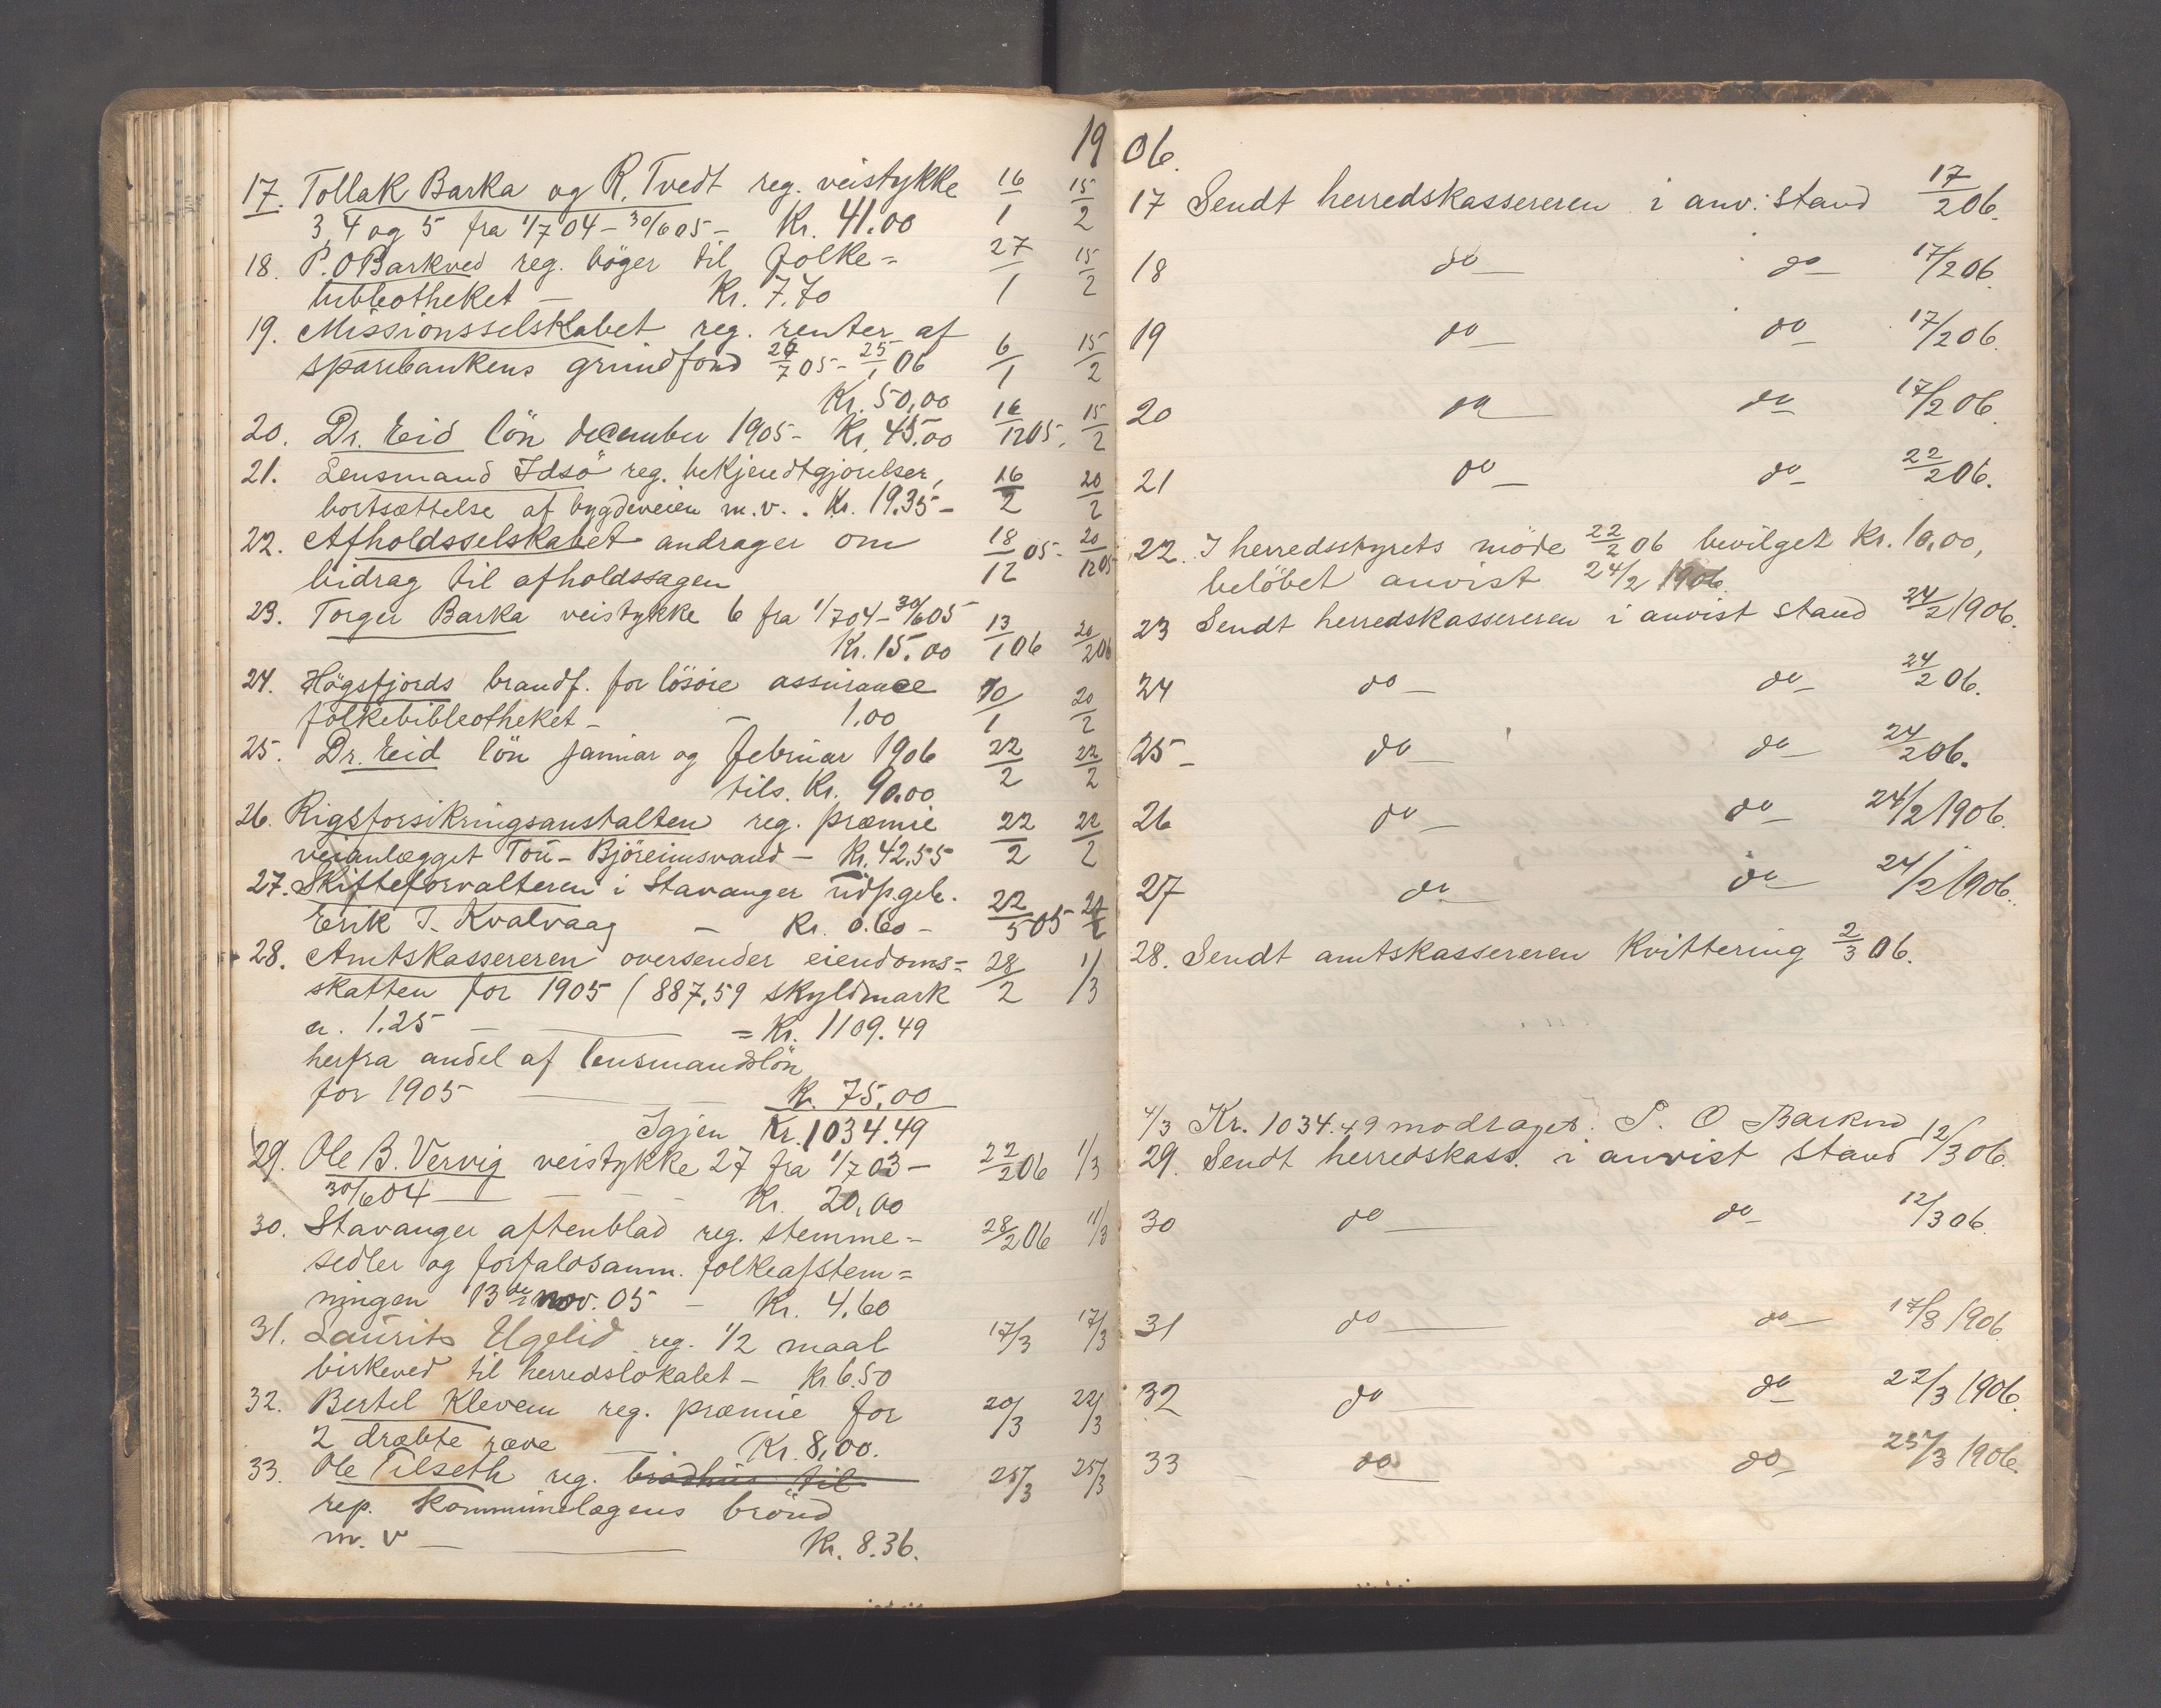 1906.
17. Tollak Barka og R. Tvedt reg. veistykke 16/1 15/2
3, 4 og 5 fra 1/7 04 - 30/6 05 - Kr. 41.00
18. P. O Barkved reg. böger til folke= 27/1 15/2
bibleotheket - Kr. 7.70
19. Missionsselskabet reg. renter af
sparebankens grundfond 26/7 05 - 25/1 06 6/1 15/2
Kr. 50,00
20. Dr. Eid lön december 1905 - Kr. 45.00 16/12 05. 15/2
21. Lensmand Idsö reg. bekjendtgjörelser, 16/2 20/2
bortsættelse af bygdeveien m.v. . Kr. 19.35 -
22. Afholdsselskabet andrager om 18/12 05 - 20/12 05
bidrag til afholdssagen
23. Torger Barka veistykke 6 fra 1/7 04 - 30/6 05 13/1 06 20/2 06
Kr. 15.00
24. Högsfjords brandf. for lösöre assurance 10/1 20/2
folkebibleotheket - - 1.00
25. Dr. Eid lön januar og februar 1906 22/2 22/2
tils. Kr. 90.00
26. Rigsforsikringsanstalten reg. præmie 22/2 22/2
veianlægget Tou - Björeimsvand - Kr. 42.55
27. Skifteforvalteren i Stavanger udp.geb.
Erik T. Kvalvaag - Kr. 0.60 - 22/5 05 22/2
28. Amtskassereren oversender eiendoms= 28/2 1/3
skatten for 1905 (887,59 skyldmark
a. 1.25 - = Kr. 1109.49
herfra andel af lensmandslön
for 1905 - Kr. 75,00
Igjen Kr. 1034.49
29. Ole B. Vervig veistykke 27 fra 1/7 03 - 22/2 06 1/3
30/6 04 - - - Kr. 20,00
30. Stavanger aftenblad reg. stemme= 28/2 06 11/3
sedler og forfaldsanm. folkeafstem=
ningen 13de nov. 05 - Kr. 4.60
31. Laurits Ugelid reg. 1/2 maal 17/3 17/3
birkeved til herredslokalet - Kr. 6.50
32. Bertel Klevem reg. præmie for 20/3 22/3
2 dræbte ræve - Kr. 8,00.
33. Ole Tilseth reg. 25/3 25/3
rep. kommunelagens brönd
m. v - Kr. 8.36.
17 Sendt herredskassereren i anv: stand 17/2 06.
18 do - do - 17/2 06.
19 do - do - 17/2 06.
20 do - do - 17/2 06.
21 do - do - 22/2 06.
22. I herredsstyrets möde 22/2 06 bevilget Kr. 10,00,
belöbet anvist 24/2 1906.
23 Sendt herredskassereren i anvist stand 24/2 1906.
24 do - do - 24/2 06.
25 - do - do - 24/2 06.
26 do - do - 24/2 1906.
27 do - do - 24/2 1906.
28. Sendt amtskassereren Kvittering 2/3 06.
4/3 Kr. 1034.49 modtaget. P. O Barkved
29. Sendt herredskass. i anvist stand 12/3 06.
30 do - do - 12/3 06.
31 do - do - 17/3 1906.
32 do - do - 22/3 1906.
33 do - do - 25/3 1906.